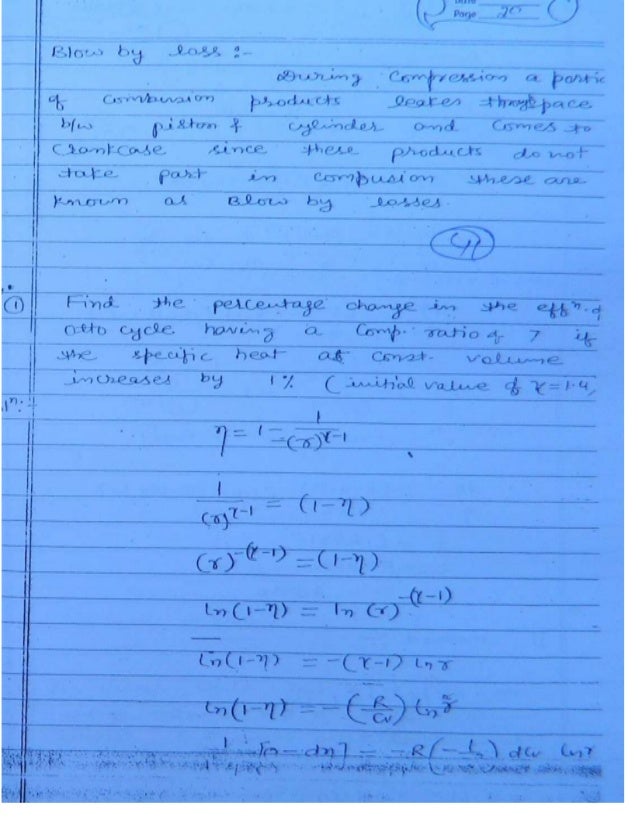 Page 20
Blow by loss :-
During compression a partic
of combusion products leakes through space
b/w piston & cylinder and comes to
crankcase since these products do not
take part in compusion these are
known as Blow by losses.
41
① Find the percentage change in the effⁿ. of
otto cycle having a comp. ratio of 7 if
the specific heat at const. volume
increases by 1% (initial value of γ = 1.4,
lⁿ:-
η = 1 - 1/(r)^(γ-1)
1/(r)^(γ-1) = (1-η)
(r)^-(γ-1) = (1-η)
ln(1-η) = ln (r)^-(γ-1)
ln(1-η) = -(γ-1) ln r
ln(1-η) = -(R/Cv) ln r
dη] = -R(- dCv ln r